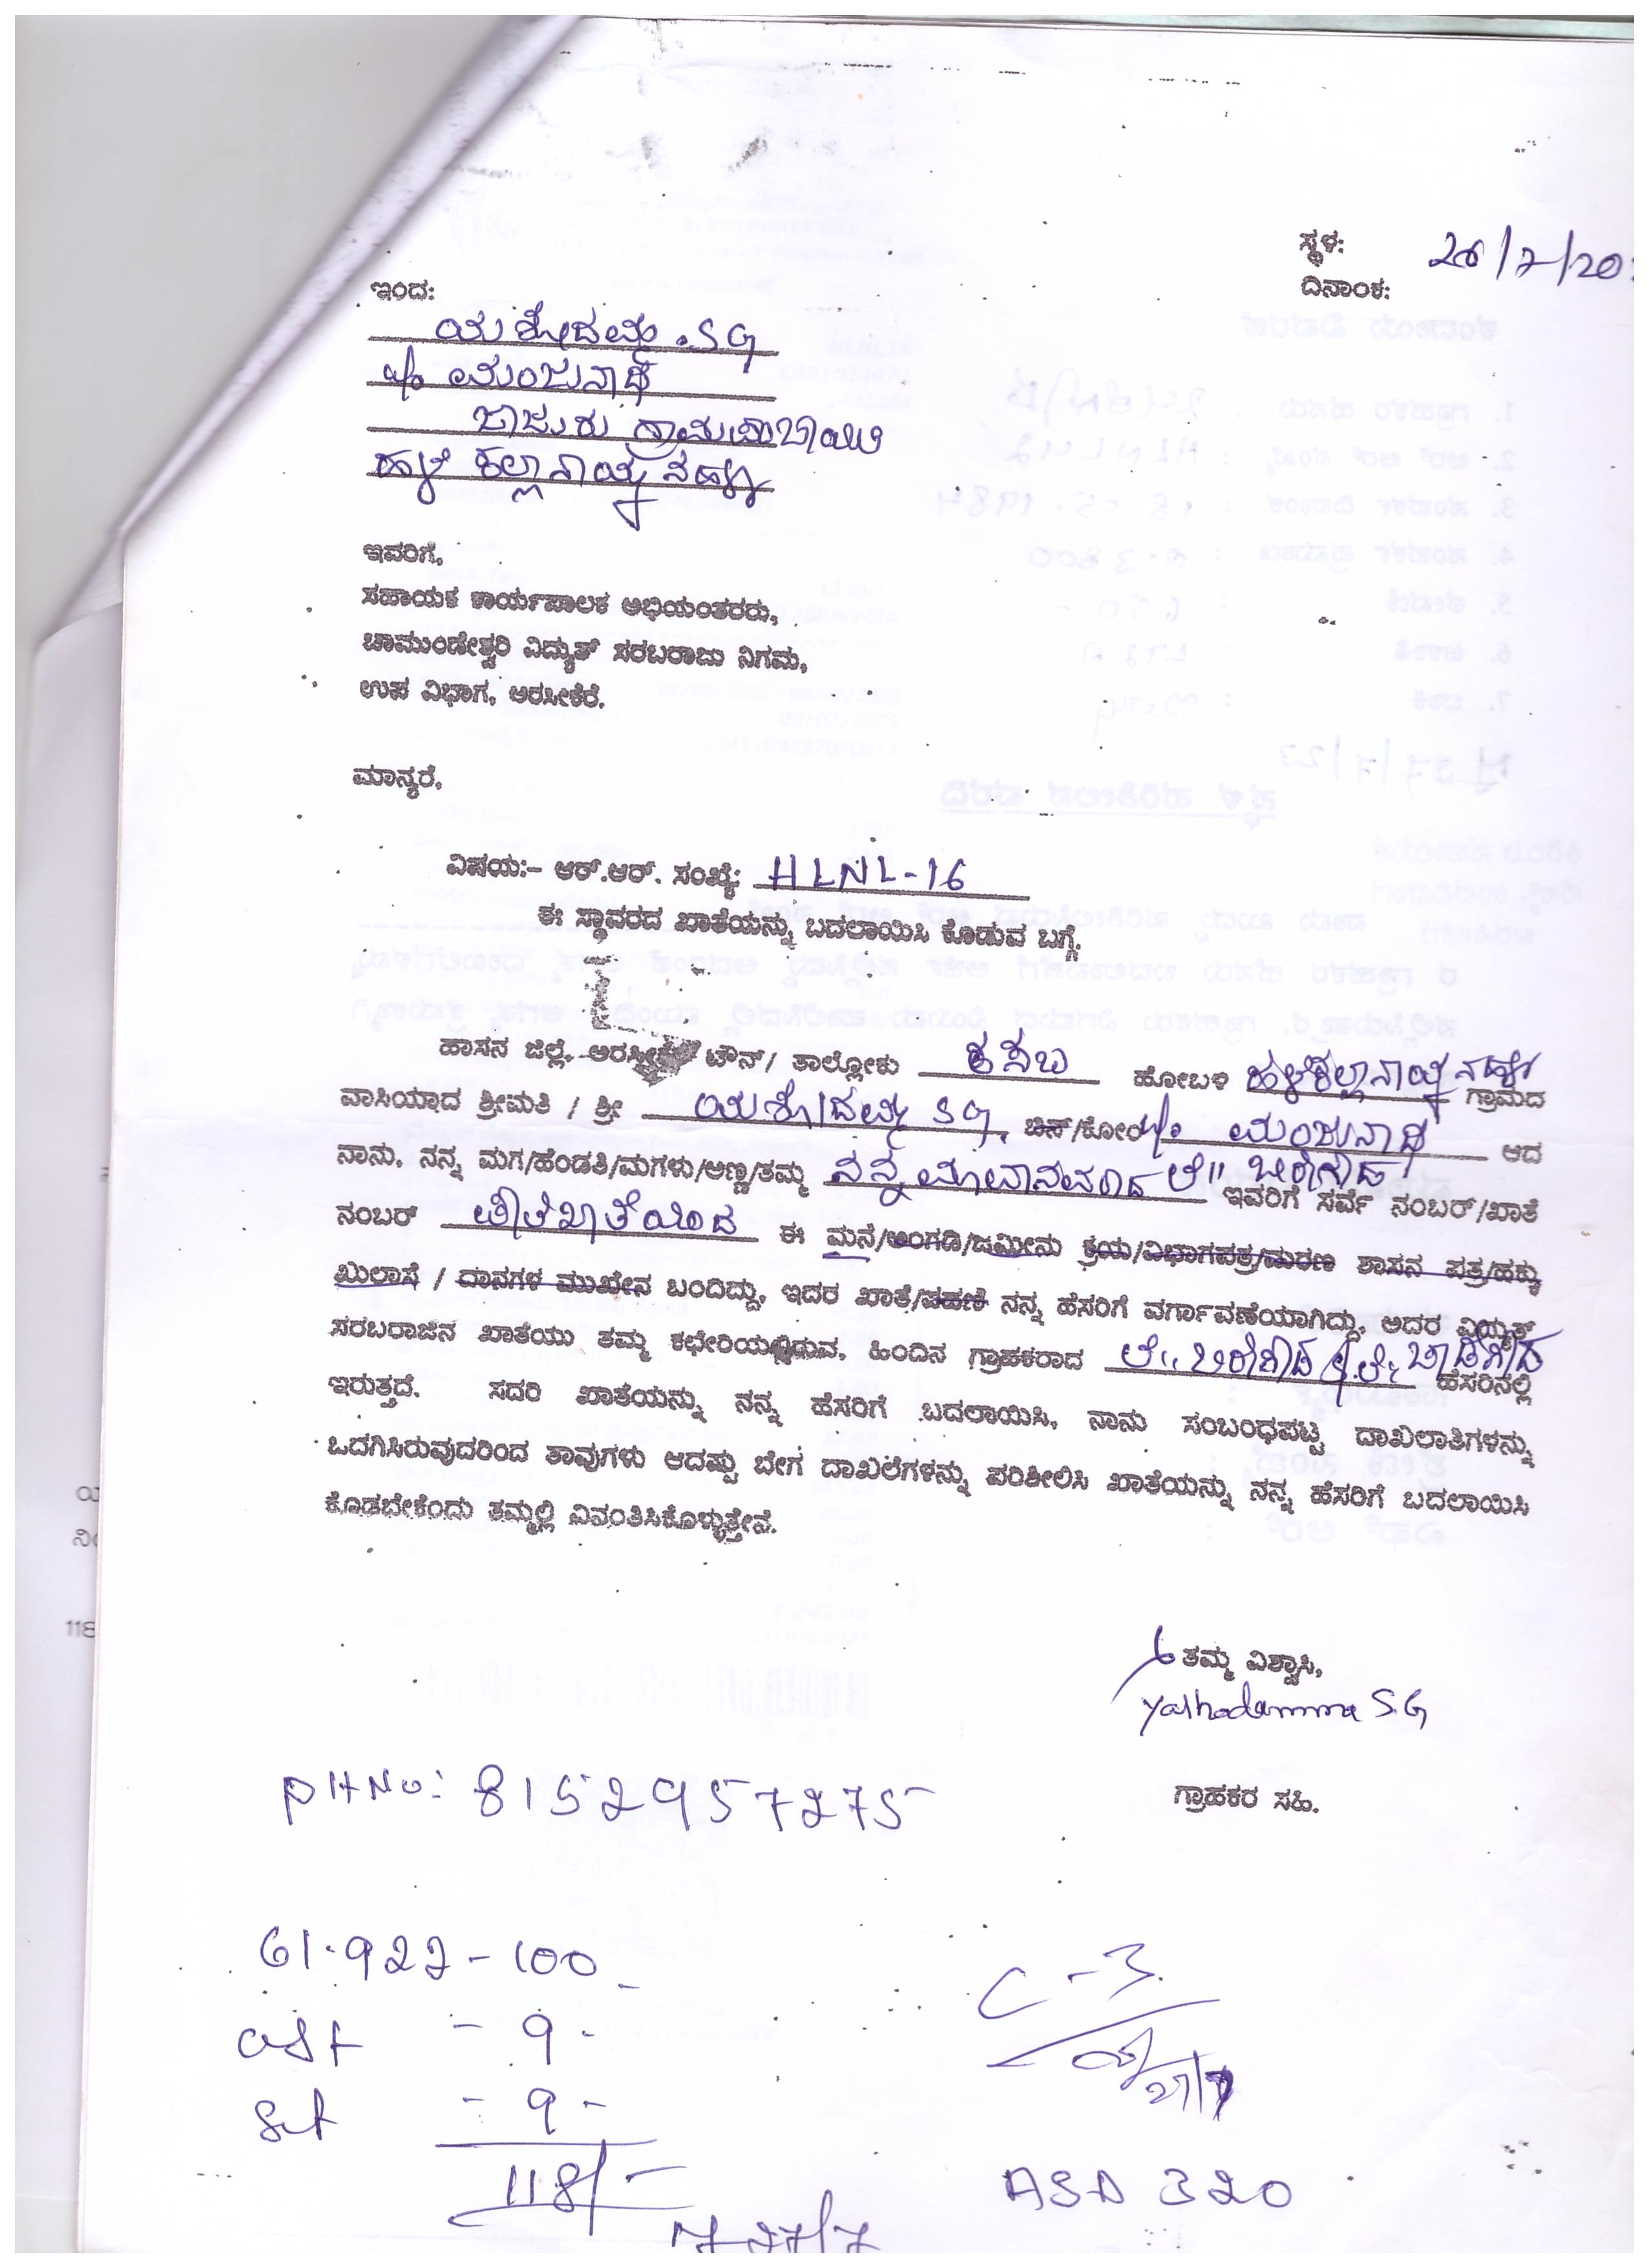 ಸ್ಥಳ:
26/7/20
ದಿನಾಂಕ:
ಇಂದ:
ಯಶೋದಮ್ಮ .SG
w/o ಮಂಜುನಾಥ
ಜಾಜೂರು ಗ್ರಾಮಪಂಚಾಯಿತಿ
ಹಳೆ ಕಲ್ಲನಾಯ್ಕನಹಳ್ಳಿ
ಇವರಿಗೆ,
ಸಹಾಯಕ ಕಾರ್ಯಪಾಲಕ ಅಭಿಯಂತರರು,
ಚಾಮುಂಡೇಶ್ವರಿ ವಿದ್ಯುತ್ ಸರಬರಾಜು ನಿಗಮ,
ಉಪ ವಿಭಾಗ, ಅರಸೀಕೆರೆ.
ಮಾನ್ಯರೆ,
ವಿಷಯ:- ಆರ್.ಆರ್. ಸಂಖ್ಯೆ: HLNL-16
ಈ ಸ್ಥಾವರದ ಖಾತೆಯನ್ನು ಬದಲಾಯಿಸಿ ಕೊಡುವ ಬಗ್ಗೆ.
ಹಾಸನ ಜಿಲ್ಲೆ, ಅರಸೀಕೆರೆ ಟೌನ್/ ತಾಲ್ಲೋಕು ಕಸಬ ಹೋಬಳಿ ಹಳೆಕಲ್ಲನಾಯ್ಕನಹಳ್ಳಿ ಗ್ರಾಮದ
ವಾಸಿಯಾದ ಶ್ರೀಮತಿ / ಶ್ರೀ ಯಶೋದಮ್ಮ SG, ಬಿನ್/ಕೋಂ w/o ಮಂಜುನಾಥ ಆದ
ನಾನು, ನನ್ನ ಮಗ/ಹೆಂಡತಿ/ಮಗಳು/ಅಣ್ಣ/ತಮ್ಮ ನನ್ನ ಮಾವನವರಾದ ಲೇ|| ಬೀರೇಗೌಡ ಇವರಿಗೆ ಸರ್ವೆ ನಂಬರ್/ಖಾತೆ
ನಂಬರ್ ಪೌತಿಖಾತೆಯಿಂದ ಈ ಮನೆ/ಅಂಗಡಿ/ಜಮೀನು ಕ್ರಯ/ವಿಭಾಗಪತ್ರ/ಮರಣ ಶಾಸನ ಪತ್ರ/ಹಕ್ಕು
ಖುಲಾಸೆ / ದಾನಗಳ ಮುಖೇನ ಬಂದಿದ್ದು, ಇದರ ಖಾತೆ/ಪಹಣಿ ನನ್ನ ಹೆಸರಿಗೆ ವರ್ಗಾವಣೆಯಾಗಿದ್ದು, ಅದರ ವಿದ್ಯುತ್
ಸರಬರಾಜಿನ ಖಾತೆಯು ತಮ್ಮ ಕಛೇರಿಯಲ್ಲಿರುವ, ಹಿಂದಿನ ಗ್ರಾಹಕರಾದ ಲೇ|| ಬೀರೇಗೌಡ ಹೆಸರಿನಲ್ಲಿ
ಇರುತ್ತದೆ. ಸದರಿ ಖಾತೆಯನ್ನು ನನ್ನ ಹೆಸರಿಗೆ ಬದಲಾಯಿಸಿ, ನಾನು ಸಂಬಂಧಪಟ್ಟ ದಾಖಲಾತಿಗಳನ್ನು
ಒದಗಿಸಿರುವುದರಿಂದ ತಾವುಗಳು ಆದಷ್ಟು ಬೇಗ ದಾಖಲೆಗಳನ್ನು ಪರಿಶೀಲಿಸಿ ಖಾತೆಯನ್ನು ನನ್ನ ಹೆಸರಿಗೆ ಬದಲಾಯಿಸಿ
ಕೊಡಬೇಕೆಂದು ತಮ್ಮಲ್ಲಿ ವಿನಂತಿಸಿಕೊಳ್ಳುತ್ತೇನೆ.
ತಮ್ಮ ವಿಶ್ವಾಸಿ,
Yashodamma S.G
PHNo: 8152957275
ಗ್ರಾಹಕರ ಸಹಿ.
61.922 - 100
C - 3
- 9 -
27/7
- 9 -
118/-
ASD 320
27/7